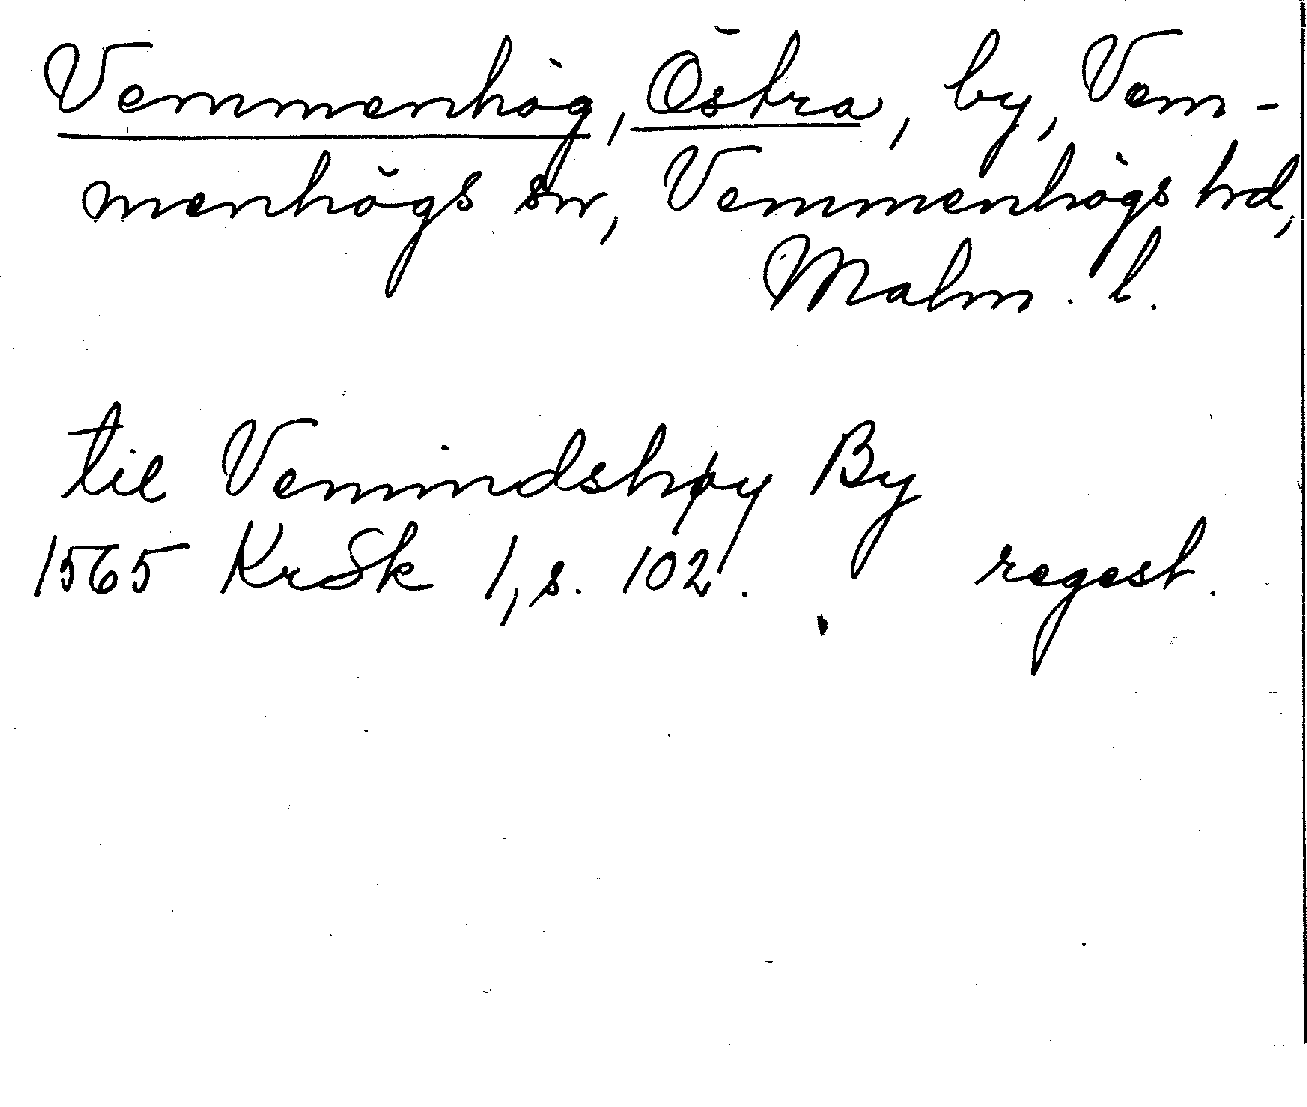 Vemmenhög, Östra, by, Vem-
menhögs sn, Vemmenhögs hd,
Malm. l.
til Vemindshøy By
1565 KrSk 1, s. 102. regest.